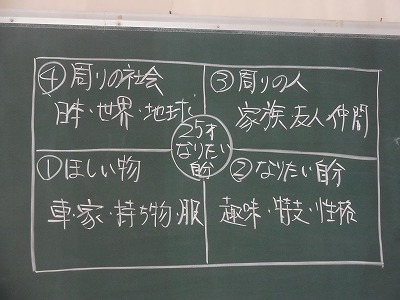 ④周りの社会
日本・世界・地球
③周りの人
家族・友人・仲間
25才
なりたい
自分
①ほしい物
車・家・持ち物・服
②なりたい自分
趣味・特技・性格